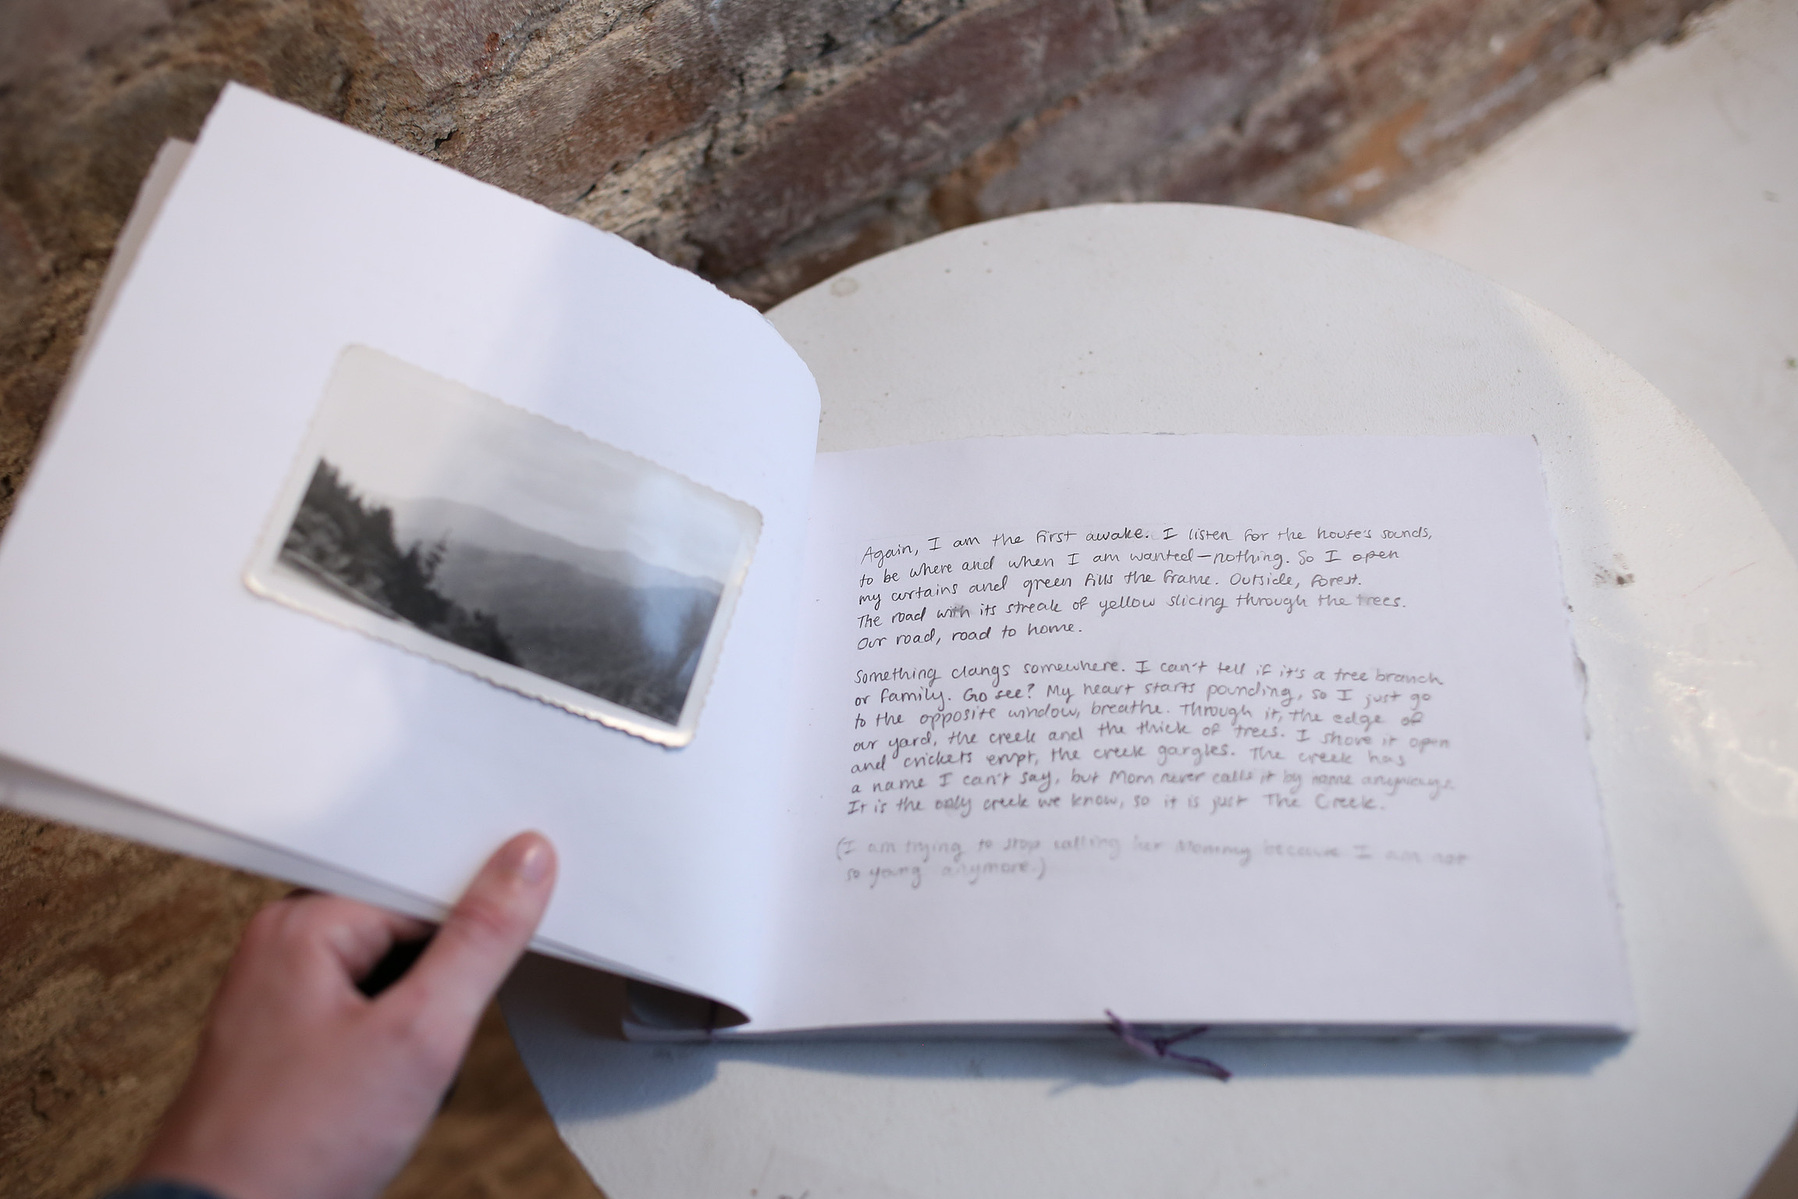 Again, I am the first awake. I listen for the house's sounds,
to be where and when I am wanted—nothing. So I open
my curtains and green fills the frame. Outside, forest.
The road with its streak of yellow slicing through the trees.
Our road, road to home.
Something clangs somewhere. I can't tell if it's a tree branch
or family. Go see? My heart starts pounding, so I just go
to the opposite window, breathe. Through it, the edge of
our yard, the creek and the thick of trees. I shove it open
and crickets erupt, the creek gargles. The creek has
a name I can't say, but Mom never calls it by name anyways.
It is the only creek we know, so it is just The Creek.
(I am trying to stop calling her Mommy because I am not
so young anymore.)